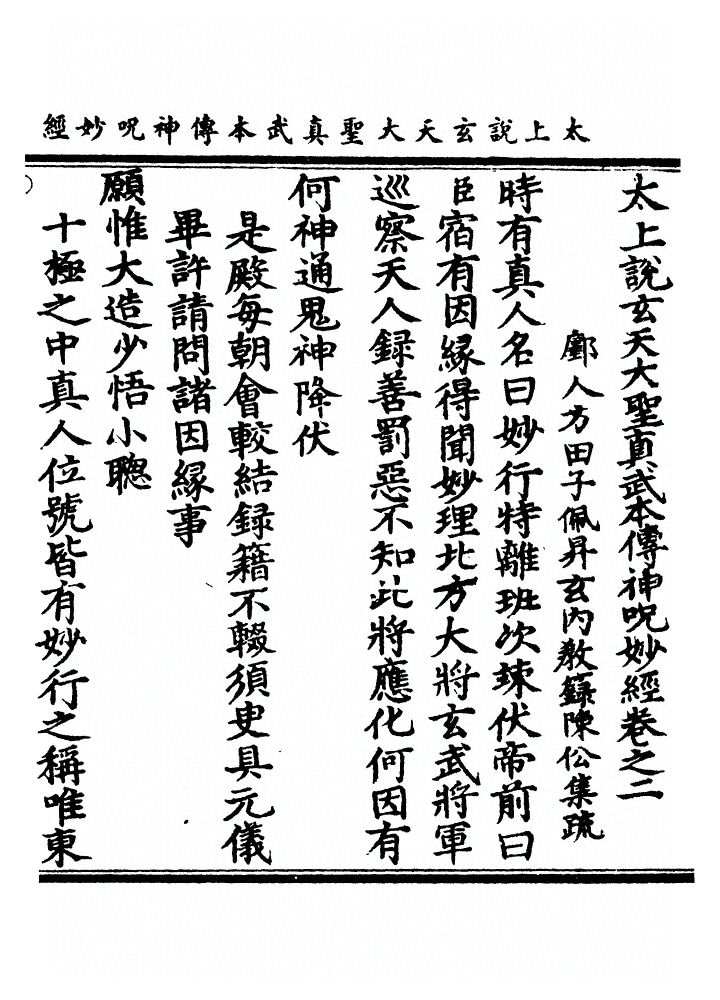 太上說玄天大聖真武本傳神呪妙經
太上說玄天大聖真武本傳神呪妙經卷之二
鄽人方田子佩昇玄內教籙陳伀集疏
時有真人名曰妙行特離班次竦伏帝前曰
臣宿有因緣得聞妙理北方大將玄武將軍
巡察天人録善罰惡不知此將應化何因有
何神通鬼神降伏
是殿每朝會較結録籍不輟須㬰具元儀
畢許請問諸因緣事
願惟大造少悟小聰
十極之中真人位號皆有妙行之稱唯東